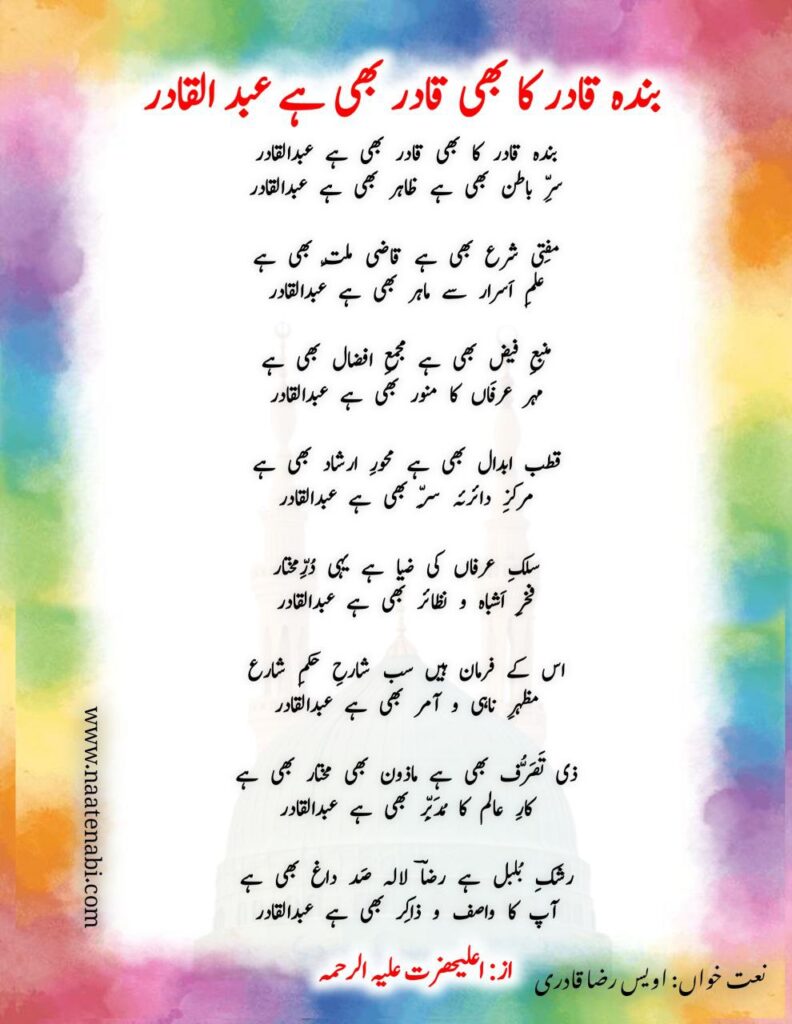 بندہ قادر کا بھی قادر بھی ہے عبد القادر
بندہ قادر کا بھی قادر بھی ہے عبدالقادر
سرِّ باطن بھی ہے ظاہر بھی ہے عبدالقادر
مفتِی شرع بھی ہے قاضی ملت بھی ہے
علمِ اَسرار سے ماہر بھی ہے عبدالقادر
منبعِ فیض بھی ہے مجمعِ افضال بھی ہے
مہر عرفَاں کا منور بھی ہے عبدالقادر
قطب ابدال بھی ہے محورِ ارشاد بھی ہے
مرکزِ دائرئہ سرّ بھی ہے عبدالقادر
سلکِ عرفاں کی ضیا ہے یہی دُرِّمختار
فخرِ اَشباہ و نظائر بھی ہے عبدالقادر
اس کے فرمان ہیں سب شارحِ حکمِ شارع
مظہرِ ناہی و آمر بھی ہے عبدالقادر
ذی تَصَرُّف بھی ہے ماذون بھی مختار بھی ہے
کارِ عالم کا مُدَبِّر بھی ہے عبدالقادر
رشکِ بُلبل ہے رضاؔ لالہ صَد داغ بھی ہے
آپ کا واصف و ذاکِر بھی ہے عبدالقادر
از: اعلیحضرت علیہ الرحمہ
نعت خواں: اویس رضا قادری
www.naatenabi.com